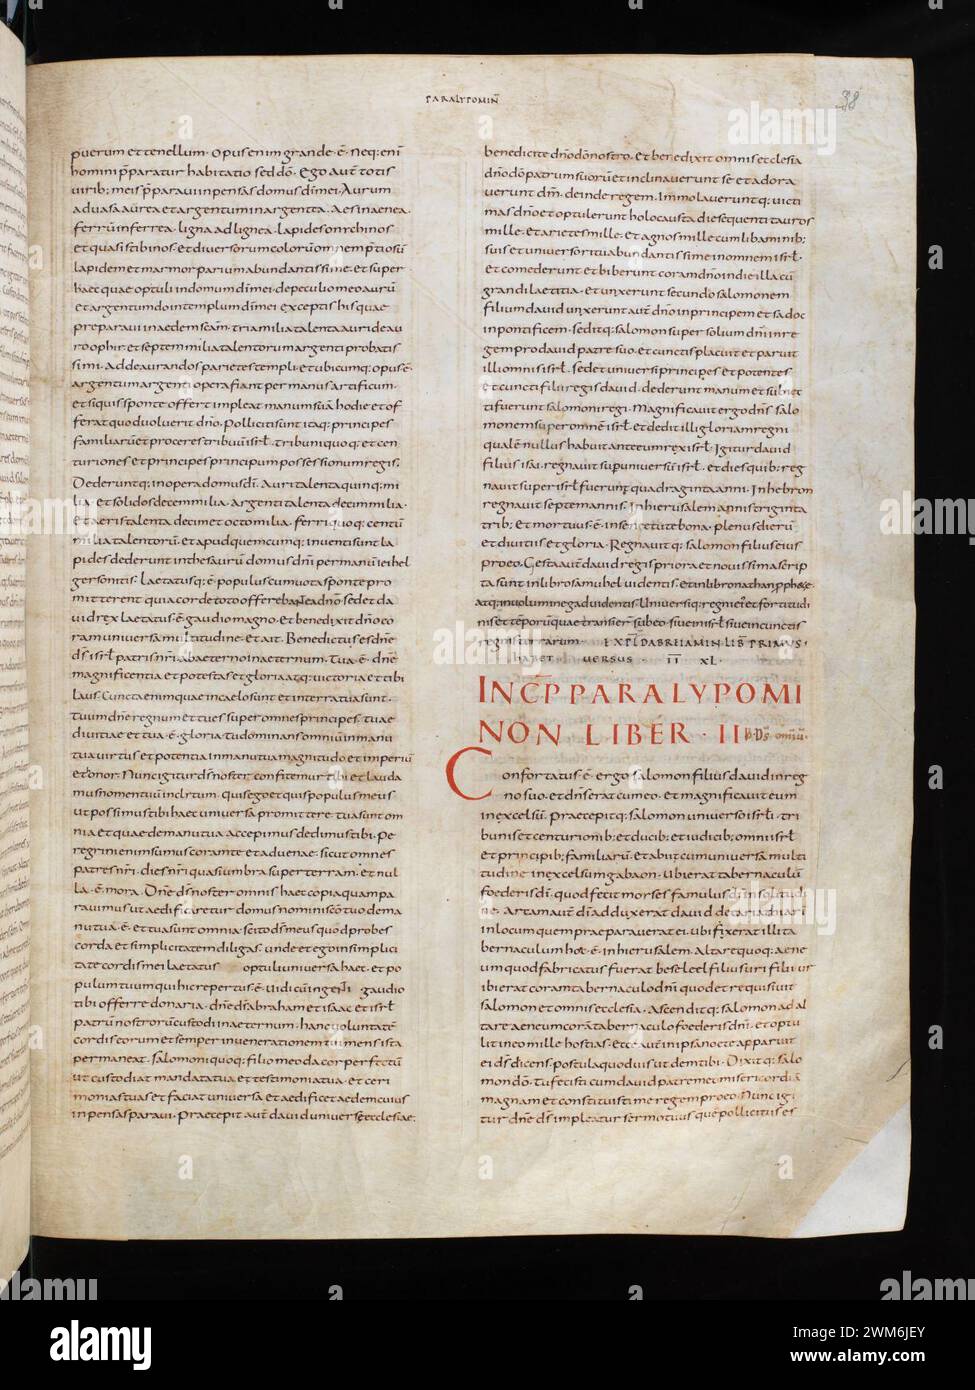 PARALYPOMIN̄
38
puerum et tenellum. Opus enim grande. ē. Neq: enī
homini p̄paratur habitatio sed dō. Ego aut̄ totis
virib; meis p̄paravi inpensas domus dī mei. Aurum
ad vasa aurea et argentum in argentea. Aes in aenea.
ferrū in ferrea. ligna ad lignea. lapides onychinos
et quasi stibinos. et diversorum colorū omnem p̄tiosū
lapidem et marmor parium abundantissime. et super
haec quae optuli in domum dī mei. de peculio meo aurū
et argentum do in templum dī mei exceptis his quae
preparavi in aedem scām. tria milia talenta auri de au
ro ophir. et septem milia talentorum argenti probatis
simi. Ad deaurandos parietes templi. et ubicumq; opus. ē.
argentum argenti opera fiant per manus artificum.
et si quis sponte offert impleat manum suā hodie et of
ferat quod voluerit dn̄o. Polliciti sunt itaq; principes
familiarū et proceres tribuū isrl̄. tribuni quoq; et cen
turiones et principes principum possessionum regis.
Dederuntq; in opera domus dī. Auri talenta quinq; mi
lia. et solidos decem milia. Argenti talenta decim milia.
et aeris talenta decim et octo milia. ferri quoq; centū
milia talentorū. et apud quemcumq; inventi sunt la
pides dederunt in thesaurū domus dn̄i per manū iehihel
gersonitis. Laetatusq; ē populus cum vota sponte pro
mitterent quia corde toto offerebant ea dn̄o. sed et da
vid rex laetatus. ē gaudio magno. et benedixit dn̄o co
ram universa multitudine. et ait. Benedictus es dn̄e
ds̄ isrl̄ patris nr̄i. ab aeterno in aeternum. Tua. ē. dn̄e
magnificentia et potestas et gloria atq; victoria et tibi
laus. Cuncta enim quae in caelo sunt et in terra tua sunt.
tuum dn̄e regnum et tu es super omnes principes. tuae
divitiae et tua. ē. gloria. tu dominans omniū. in manu
tua virtus et potentia. in manu tua magnitudo et imperiū
et honor. Nunc igitur ds̄ noster confitemur tibi et lauda
mus nomen tuū inclitum. quis ego et quis populus meus
ut possimus tibi haec universa promittere. tua sunt om
nia et quae de manu tua accepimus dedimus tibi. Pe
regrini enim sumus coram te et advenae. sicut omnes
patres nr̄i. dies nr̄i quasi umbra super terram. et nul
la. ē. mora. Dn̄e ds̄ noster omnis haec copia quam pa
ravimus ut aedificaretur domus nomini scō tuo de ma
nu tua. ē. et tua sunt omnia. scio ds̄ meus quod probes
corda et simplicitatem diligas. unde et ego in simplici
tate cordis mei laetatus optuli universa haec. et po
pulum tuum qui hic repertus. ē. vidi cū ingenti gaudio
tibi offerre donaria. dn̄e ds̄ abraham et isaac et isrl̄
patrū nostrorū custodi in aeternum. hanc voluntatē
cordis eorum et semper in venerationem tui mens ista
permaneat. salomoni quoq; filio meo da cor perfectū
ut custodiat mandata tua et testimonia tua. et ceri
monias tuas et faciat universa. et aedificet aedem cuius
inpensas paravi. Praecepit aut̄ david universae ecclesiae.
benedicite dn̄o dō nostro. Et benedixit omnis ecclesia
dn̄o dō patrum suorū et inclinaverunt se et adora
verunt dm̄. deinde regem. Immolaveruntq; victi
mas dn̄o et optulerunt holocausta die sequenti tauros
mille. et arietes mille. et agnos mille cum libaminib;
suis et universo ritu abundantissime in omnem isrl̄.
et comederunt et biberunt coram dn̄o in die illa cū
grandi laetitia. et unxerunt secundo salomonem
filium david. unxerunt aut̄ dn̄o in principem et sadoc
in pontificem. seditq; salomon super solium dn̄i in re
gem pro david patre suo. et cunctis placuit et paruit
illi omnis isrl̄. sed et universi principes et potentes
et cuncti filii regis david. dederunt manum et subiec
ti fuerunt salomoni regi. Magnificavit ergo dn̄s salo
monem super omnē isrl̄. et dedit illi gloriam regni
qualē nullus habuit ante eum rex isrl̄. Igitur david
filius isai. regnavit sup universū isrl̄. et dies quib; reg
navit super isrl̄ fuerunt quadraginta anni. In hebron
regnavit septem annis. In hierusalem annis triginta
trib; et mortuus. ē. in senectute bona. plenus dierū
et divitiis et gloria. Regnavitq; salomon filius eius
pro eo. Gesta aut̄ david regis priora et novissima scrip
ta sunt in libro samuhel videntis. et in libro nathan pphetae.
atq; in volumine gad videntis. Universiq; regni eius et fortitudi
nis et temporū quae transier̄ sub eo. sive in isrl̄ sive in cunctis
regnis terrarum. EXPL̄ DABRHAMIN. LIB̄ PRIMUS.
HABET VERSUS II XL.
INCP̄ PARALYPOMI
NON LIBER. II
Confortatus. ē. ergo salomon filius david in reg
no suo. et dn̄s erat cum eo. et magnificavit eum
in excelsū. Praecepitq; salomon universo isrl̄. tri
bunis et centurionib; et ducib; et iudicib; omni isrl̄
et principib; familiarū. et abiit cum universa multi
tudine in excelsum gabaon. Ubi erat tabernaculū
foederis dī. quod fecit moises famulus dī in solitudi
ne. Arcam aut̄ dī adduxerat david de cariathiarim
in locum quem praeparaverat ei. ubi fixerat illi ta
bernaculum hoc. ē. in hierusalem. Altare quoq; aene
um quod fabricatus fuerat beseleel filius uri filii ur
ibi erat coram tabernaculo dn̄i quod et requisivit
salomon et omnis ecclesia. Ascenditq; salomon ad al
tare aeneum corā tabernaculo foederis dn̄i. et optu
lit in eo mille hostias. Ecce aut̄ in ipsa nocte apparuit
ei ds̄ dicens. postula quod vis ut dem tibi. Dixitq; salo
mon dō. Tu fecisti cum david patre meo misericordiā
magnam et constituisti me regem pro eo. Nunc igi
tur dn̄e ds̄ impleatur sermo tuus quē pollicitus es
alamy
Image ID: 2WM6JEY
www.alamy.com